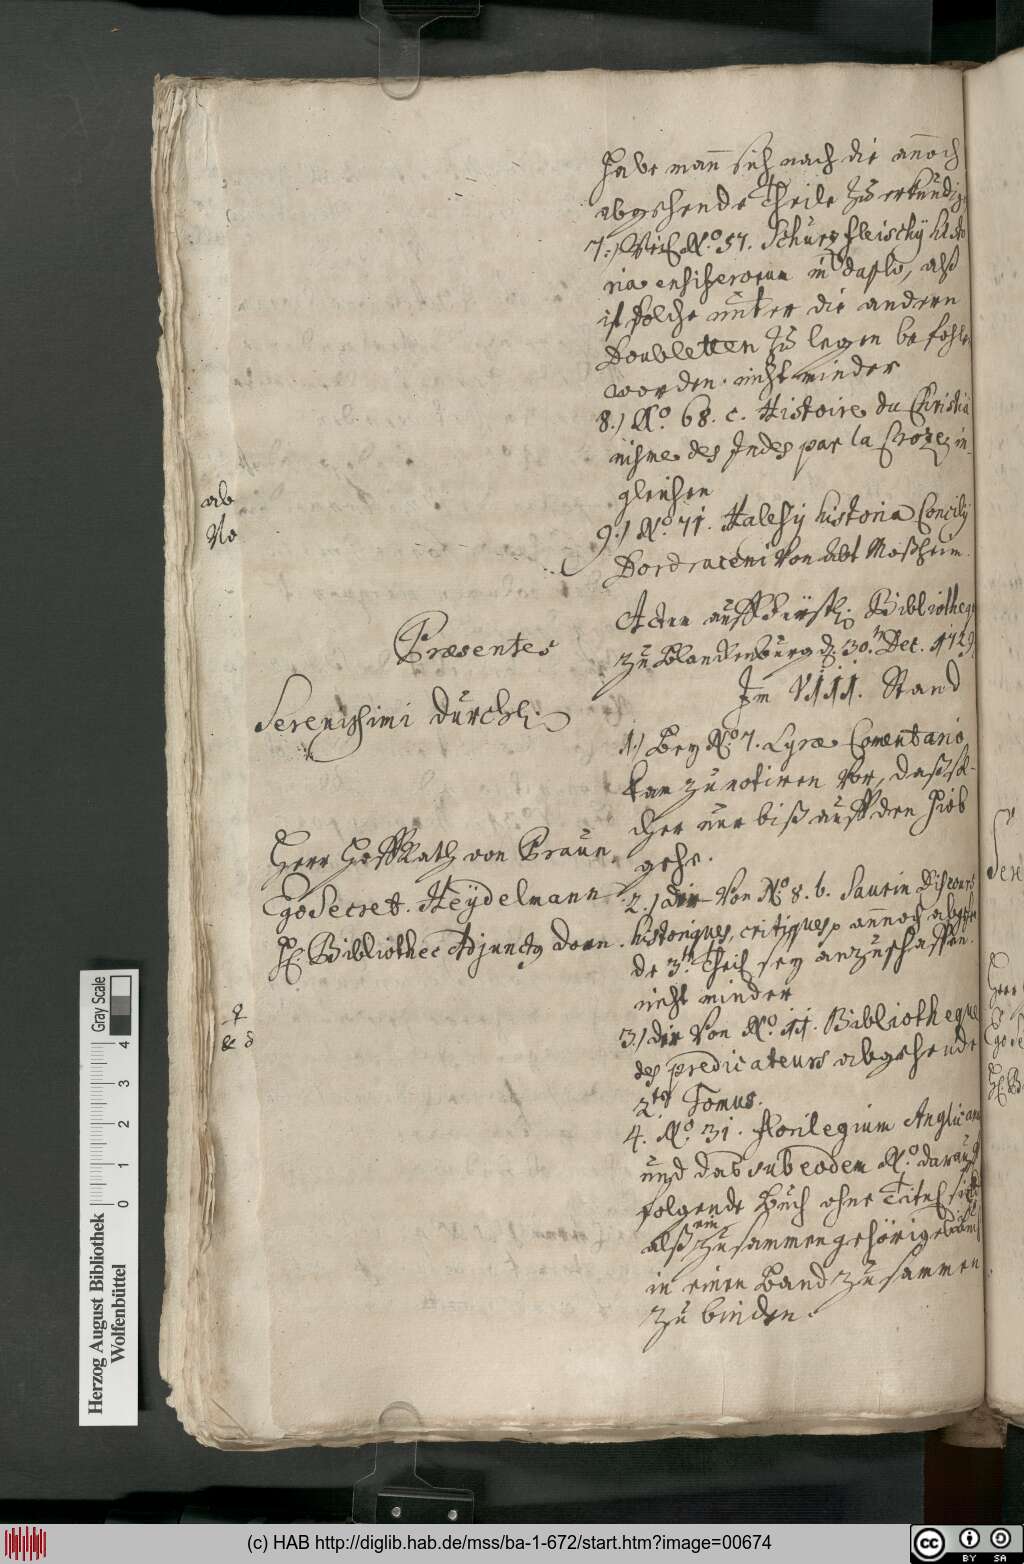 habe mann sich nach die annoch
abgehende Theile zu erkundig
7.) Weil No. 57. Schurzfleischij histo
ria ensiferorum in duplo, alß
ist solche unter die andern
Doubletten zu legen befohle
worden. nicht minder
8.) No. 68. c. Histoire du Christia
nisme des Indes par la Croze, in-
gleichen
9.) No. 71. Halesij historia Concilij
Dordraceni von Abt Moßheim.
ab
No
Actum auff Fürstl. Bibliothequ
zu Blanckenburg d. 30. Dec. 1729.
Præsentes
Serenissimi Durchl.
Herr HoffRath von Praun.
Ego Secret. Heÿdelmann
H. Bibliothec Adjunctq Dorn.
Im VIII. Stand
1.) Bey No. 7. Lyræ Comentario
kam zu notiren vor, daß sol-
cher nur biß auff den Hiob
gehe.
2.) die von No. 8. b. Saurin Discours
historiques, critiques, annoch abgehen
de 3te Theil sey anzuschaffen.
nicht minder
3.) der von No. 11. Bibliotheque
des predicateurs abgehende
2te Tomus.
4. No. 31. florilegium Anglican
und das sub eodem No. darauf
folgende Buch ohne Titul sind
alß ein zusammengehöriges Buch
in einen Band zusammen
zu binden.
&
Sere
Herr
Ego Se
H. B
Gray Scale
0 1 2 3 4
Herzog August Bibliothek
Wolfenbüttel
(c) HAB http://diglib.hab.de/mss/ba-1-672/start.htm?image=00674
cc BY SA